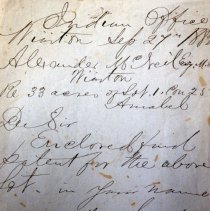 Indian Office
Wiarton Sep 27th 188
Alexander McNeil Esq. M.
Wiarton
Re 33 acres of Lot 1. Con 25
Amabel
Dr Sir
Enclosed find
patent for the above
Lot. in your name